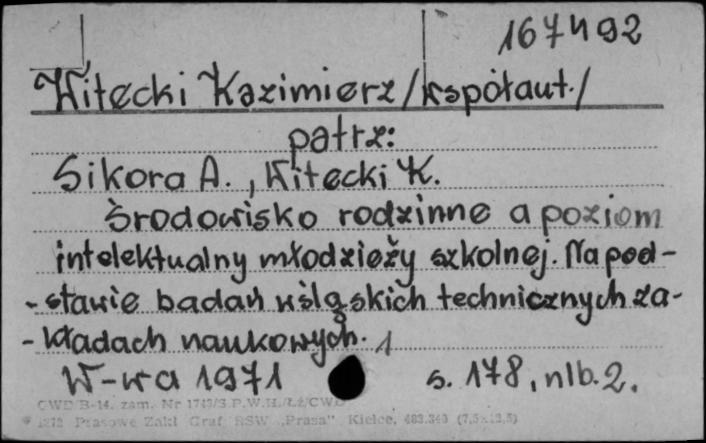 167492
Witecki Kazimierz /współaut./
patrz:
Sikora A., Witecki K.
Środowisko rodzinne a poziom
intelektualny młodzieży szkolnej. Na pod-
- stawie badań w śląskich technicznych za-
- kładach naukowych. 1
W-wa 1971 s. 178, nlb. 2.
CWD B-14. zam. Nr 1743/S.P.W.H./Łż/CWD
1972 Prasowe Zakł Graf RSW „Prasa" Kielce,